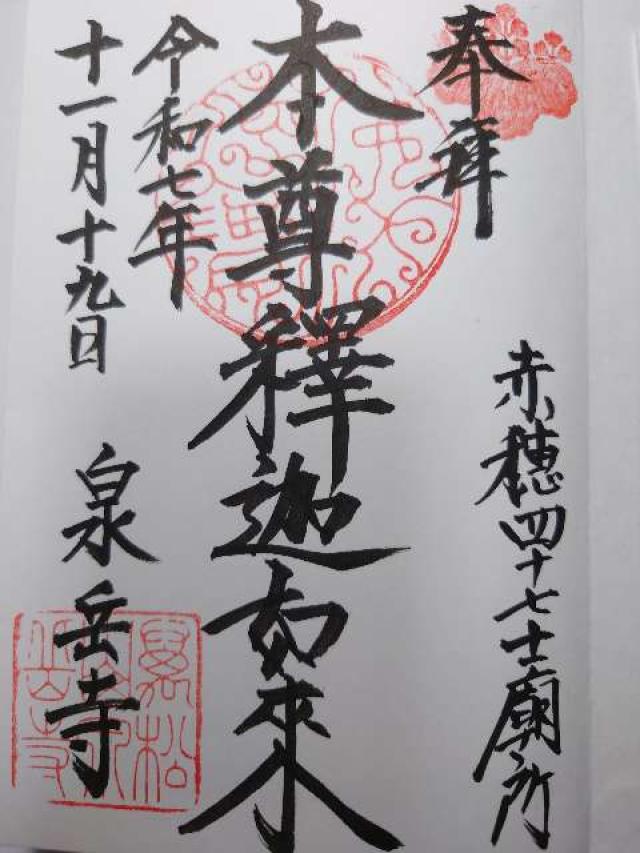 奉拝
赤穂四十七士廟所
本尊釋迦如來
令和七年
十一月十九日
泉岳寺